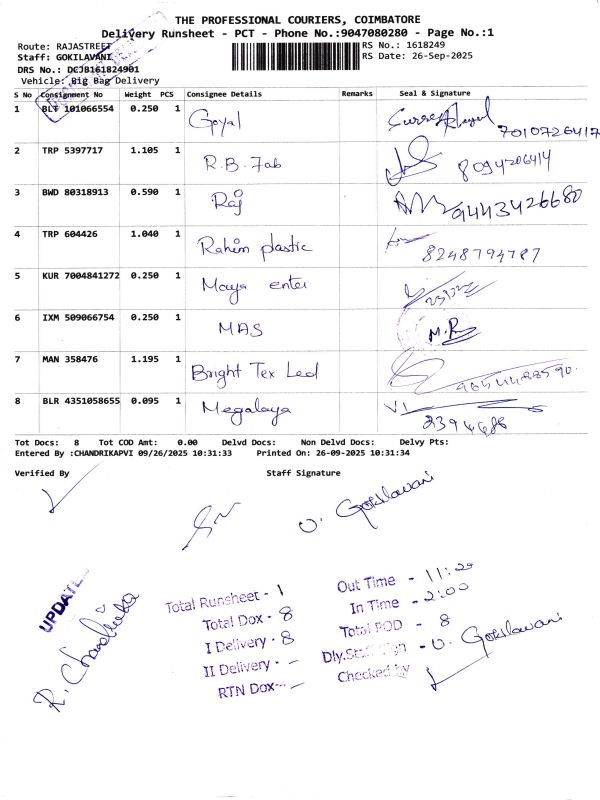 THE PROFESSIONAL COURIERS, COIMBATORE
Delivery Runsheet - PCT - Phone No.:9047080280 - Page No.:1
Route: RAJASTREET
RS No.: 1618249
Staff: GOKILAVANI
RS Date: 26-Sep-2025
DRS No.: DCJB161824901
Vehicle: Big Bag Delivery
S No Consignment No Weight PCS Consignee Details Remarks Seal & Signature
1 BLT 101066554 0.250 1 Goyal 7010726417
2 TRP 5397717 1.105 1 R.B. Fab 8094206414
3 BWD 80318913 0.590 1 Raj 9443426680
4 TRP 604426 1.040 1 Rahim plastic 8248794787
5 KUR 7004841272 0.250 1 Maya enter
6 IXM 509066754 0.250 1 MAS M.R
7 MAN 358476 1.195 1 Bright Tex Led
8 BLR 4351058655 0.095 1 Megalaya 2394686
Tot Docs: 8 Tot COD Amt: 0.00 Delvd Docs: Non Delvd Docs: Delvy Pts:
Entered By :CHANDRIKAPVI 09/26/2025 10:31:33 Printed On: 26-09-2025 10:31:34
Verified By Staff Signature
U. Gokilavani
R. Chandrika
Total Runsheet - 1
Total Dox - 8
I Delivery - 8
II Delivery - -
RTN Dox - -
Out Time - 11:20
In Time - 2:00
Total POD - 8
Dly.Staff Sign - U. Gokilavani
Checked by